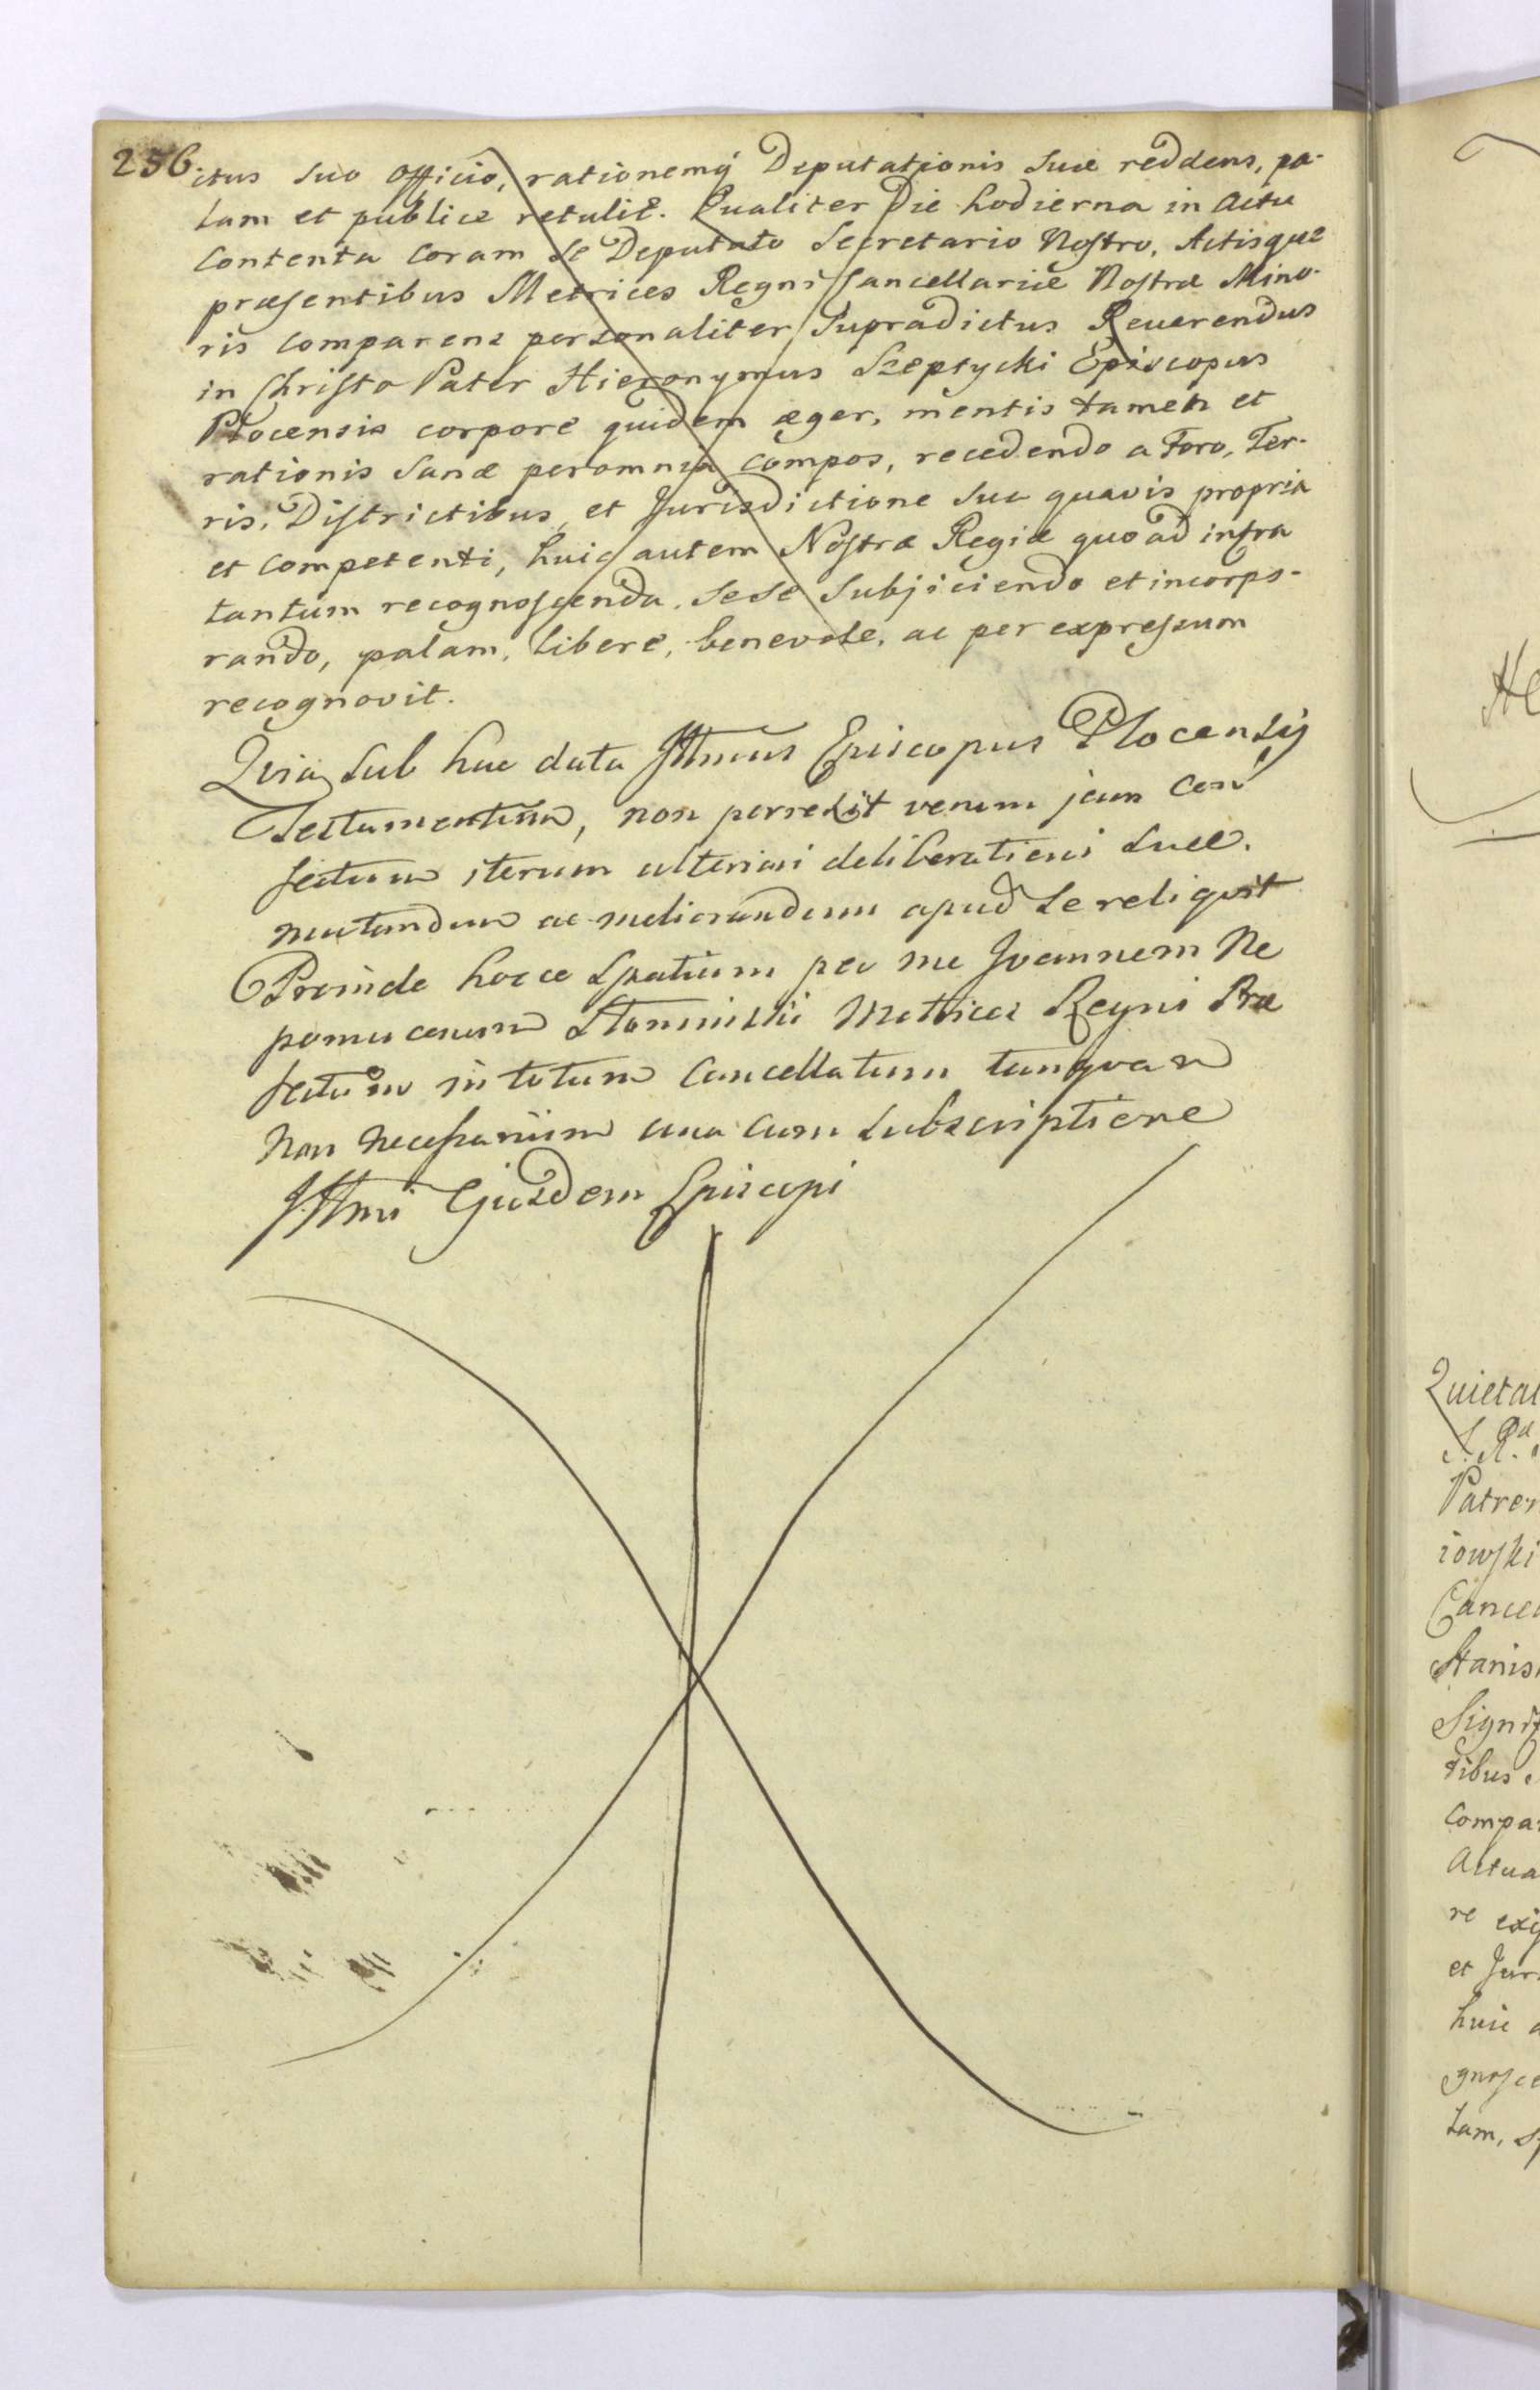 256.
ctus suo officio, rationemq́ Deputationis suæ reddens, pa-
lam et publice retulit. Qualiter Die hodierna in Actu
contenta coram se Deputato Secretario Nostro, Actisque
præsentibus Metrices Regni Cancellariæ Nostræ Mino-
ris comparens personaliter Supradictus Reverendus
in Christo Pater Hieronymus Szeptycki Episcopus
Plocensis corpore quidem æger, mentis tamen et
rationis sanæ peromnia compos, recedendo a Foro, Ter-
ris, Districtibus, et Jurisdictione sua quavis propria
et competenti, huic autem Nostræ Regiæ quoad infra
tantum recognoscenda, sese subjiciendo et incorpo-
rando, palam, libere, benevole, ac per expressum
recognovit.
Quia sub hac data Illmus Episcopus Plocensis
Testamentum, non porrexit verum jam con
fectum iterum ulteriori deliberationi suæ
mutandum ac meliorandum apud se reliquit
Proinde hocce spatium per me Joannem Ne
pomucenum Slominski Metrices Regni Præ
fectum in totum cancellatum tanquam
non necessarium una cum subscriptione
Illmi Ejusdem Episcopi
Quietat
Patrem
iowski
Cancel
Stanis
Signif
tibus
Compar
Actua
re exi
et Jur
huic a
gnosce
lam, s